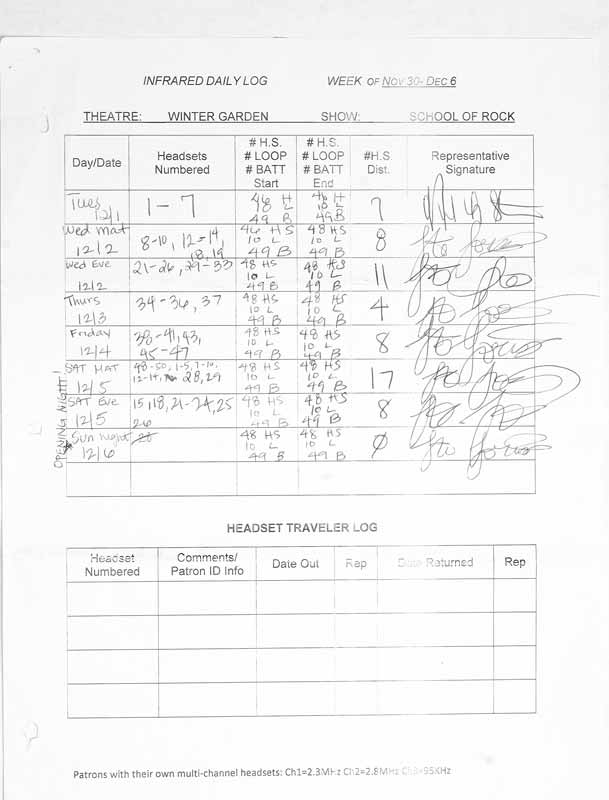 INFRARED DAILY LOG WEEK OF NOV 30- DEC 6
THEATRE: WINTER GARDEN SHOW: SCHOOL OF ROCK
Day/Date Headsets Numbered # H.S. # LOOP # BATT Start # H.S. # LOOP # BATT End #H.S. Dist. Representative Signature
Tues 12/1 1-7 46 H L 49 B 46 H 10 L 49 B 7
Wed mat 12/2 8-10, 12-14, 18,19 46 HS 10 L 49 B 48 HS 10 L 49 B 8
Wed Eve 12/2 21-26, 29-33 48 HS 10 L 49 B 48 HS 10 L 49 B 11
Thurs 12/3 34-36, 37 48 HS 10 L 49 B 48 HS 10 L 49 B 4
Friday 12/4 38-41, 43, 45-47 48 HS 10 L 49 B 48 HS 10 L 49 B 8
SAT MAT 12/5 48-50, 1-5, 7-10, 12-14, 28,29 48 HS 10 L 49 B 48 HS 10 L 49 B 17
SAT Eve 12/5 15,18, 21-24,25 26 48 HS 10 L 49 B 48 HS 10 L 49 B 8
OPENING NIGHT!
Sun night 12/6 48 HS 10 L 49 B 48 HS 10 L 49 B Ø
HEADSET TRAVELER LOG
Headset Numbered Comments/ Patron ID Info Date Out Rep Date Returned Rep
Patrons with their own multi-channel headsets: Ch1=2.3MHz Ch2=2.8MHz Ch3=95KHz